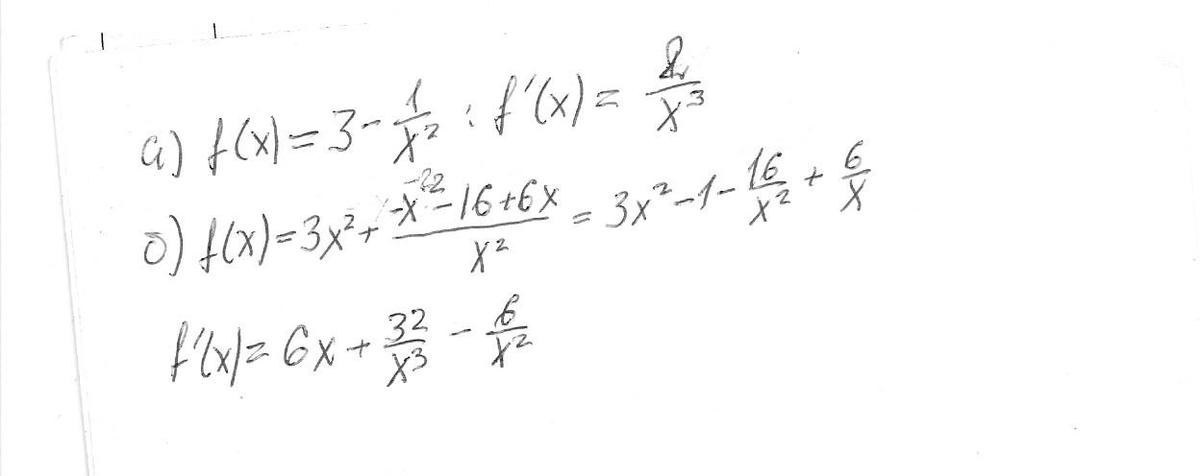 а) f(x)=3-1/x² ; f'(x)=2/x³
б) f(x)=3x²+(-x²-16+6x)/x² = 3x²-1-16/x²+6/x
f'(x)=6x+32/x³-6/x²